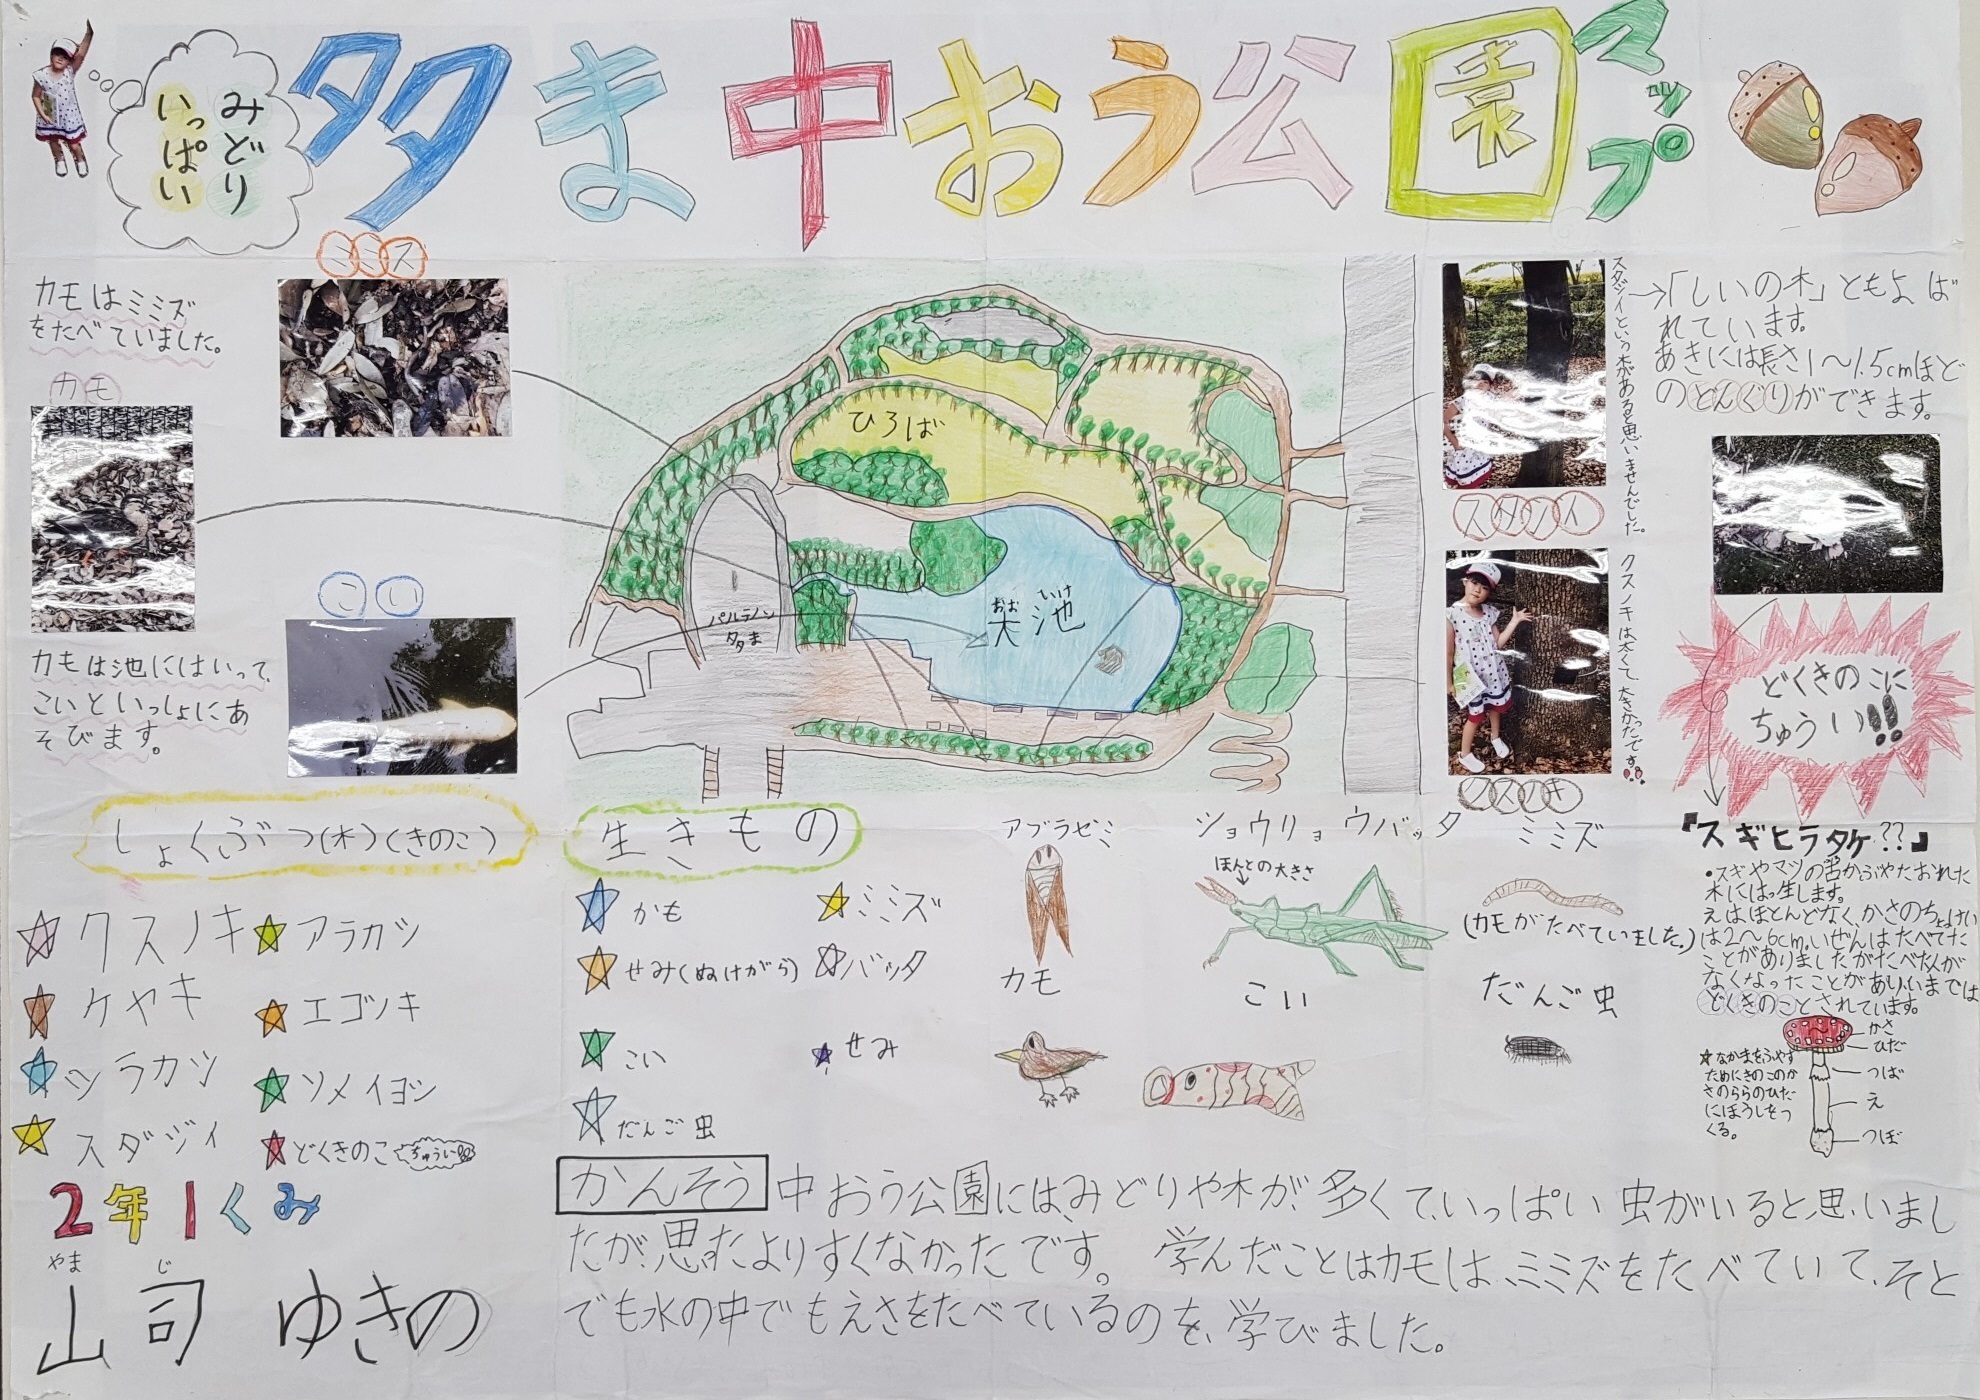 みどり
いっぱい
多ま中おう公園
マップ
ミミズ
カモはミミズ
をたべていました。
カモ
こい
カモは池にはいって、
こいといっしょにあ
そびます。
ひろば
パルテノン
多ま
おお いけ
大池
スダジイという木があると思いませんでした。
スダジイ
→「しいの木」ともよば
れています。
あきには長さ1〜1.5cmほど
のどんぐりができます。
クスノキは太くて大きかったです。
クスノキ
どくきのこに
ちゅうい!!
しょくぶつ(木)(きのこ)
クスノキ
アラカシ
ケヤキ
エゴノキ
シラカシ
ソメイヨシ
スダジイ
どくきのこ
ちゅうい
生きもの
かも
ミミズ
せみ(ぬけがら)
バッタ
こい
せみ
だんご虫
アブラゼミ
ショウリョウバッタ
ほんとの大きさ
ミミズ
(カモがたべていました。)
カモ
こい
だんご虫
『スギヒラタケ??』
・スギやマツの古かぶやたおれた
木にはっ生します。
えはほとんどなく、かさのちょけい
は2〜6cm。いぜんはたべてた
ことがありましたがたべた人が
なくなったことがあり、いまでは
どくきのことされています。
かさ
ひだ
つば
え
つぼ
なかまをふやす
ためにきのこのか
さのうらのひだ
にほうしをつ
くる。
2年1くみ
やま じ
山司 ゆきの
かんそう 中おう公園には、みどりや木が、多くて、いっぱい虫がいると思いまし
たが、思ったよりすくなかったです。 学んだことはカモは、ミミズをたべていて、そと
でも水の中でもえさをたべているのを、学びました。